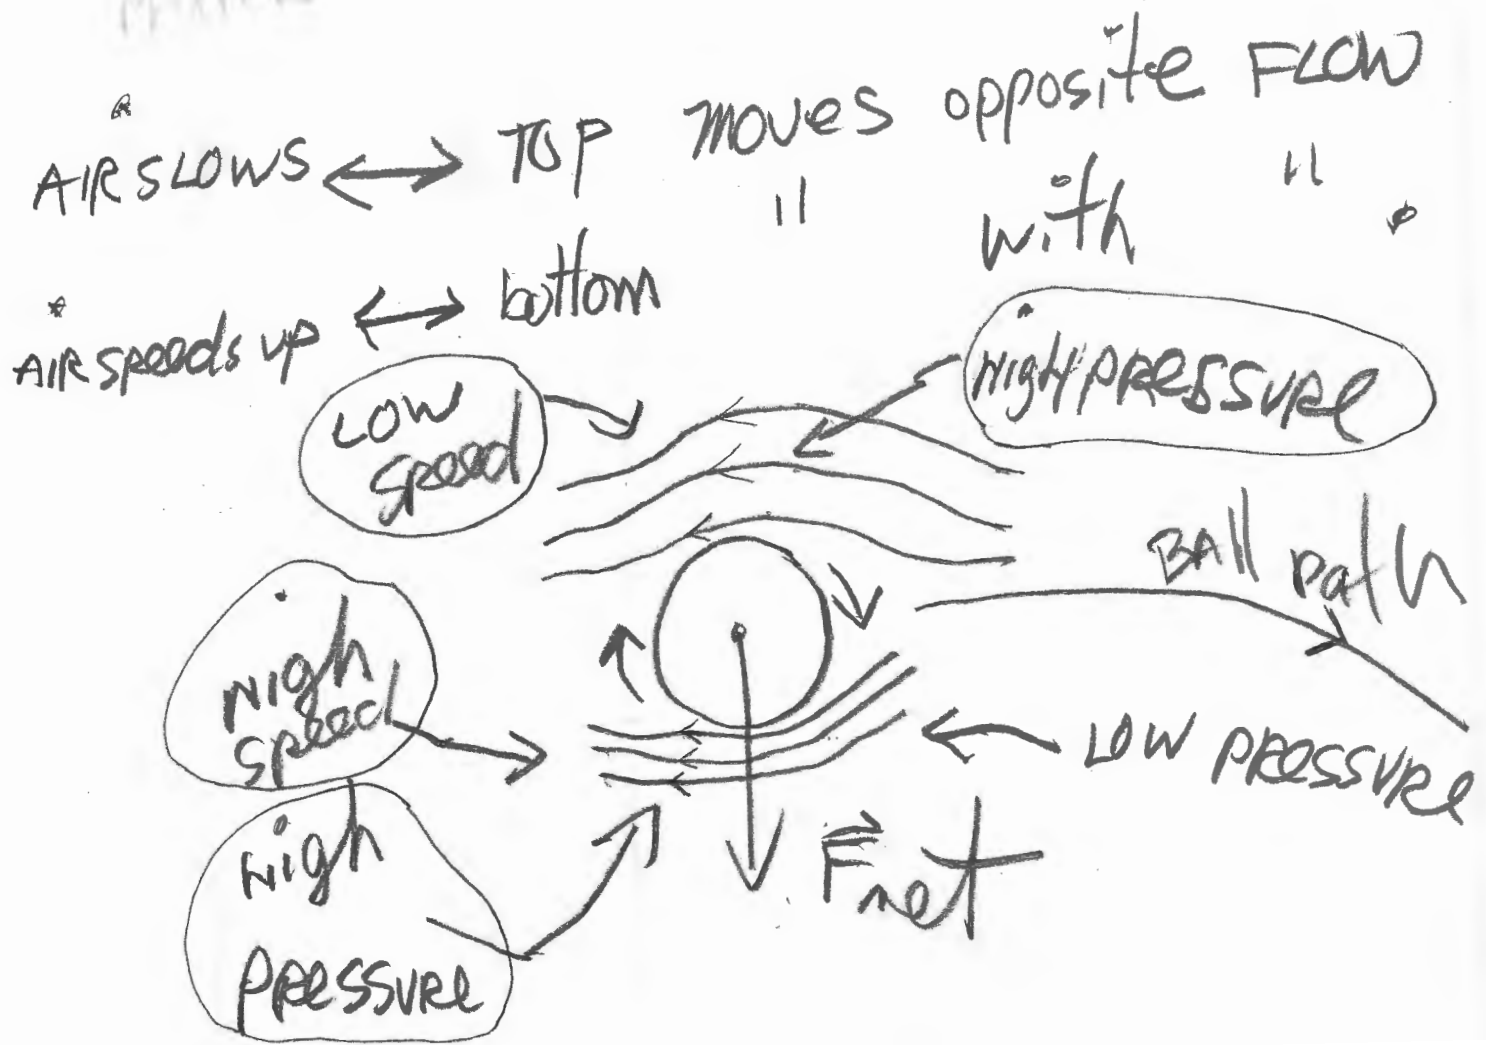 AIR SLOWS ↔ TOP moves opposite FLOW
AIR speeds up ↔ bottom " with "
LOW
speed
HigH PRESSURe
BAll path
High
speed
LOW PRESSURe
High
PRESSURe
F⃗net